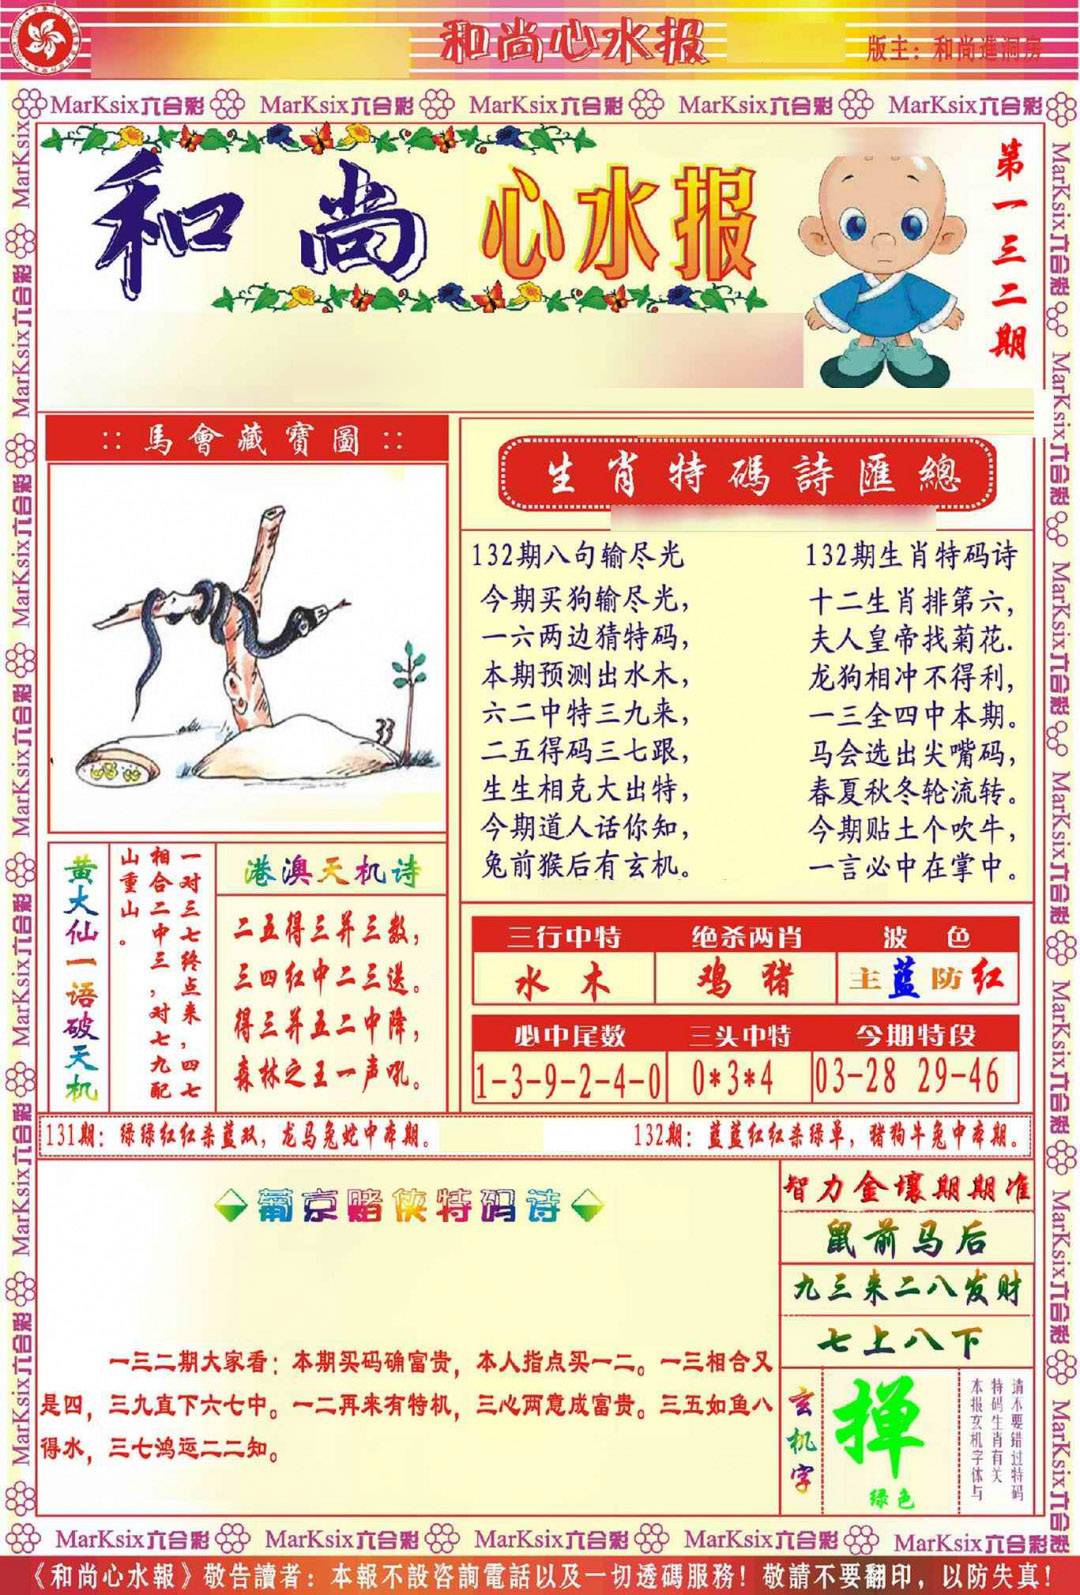 和尚心水报
版主：和尚進洞房
MarKsix六合彩 MarKsix六合彩 MarKsix六合彩 MarKsix六合彩 MarKsix六合彩
和尚心水报
第一三二期
:: 馬會藏寶圖 ::
33
生肖特碼詩匯總
132期八句输尽光
今期买狗输尽光，
一六两边猜特码，
本期预测出水木，
六二中特三九来，
二五得码三七跟，
生生相克大出特，
今期道人话你知，
兔前猴后有玄机。
132期生肖特码诗
十二生肖排第六，
夫人皇帝找菊花.
龙狗相冲不得利，
一三全四中本期。
马会选出尖嘴码，
春夏秋冬轮流转。
今期贴土个吹牛，
一言必中在掌中。
黄大仙一语破天机
一对三七终点来，四七
相合二中三，对七九配
山重山。
港澳天机诗
二五得三并三数，
三四红中二三送。
得三并五二中降，
森林之王一声吼。
三行中特 绝杀两肖 波色
水木 鸡猪 主蓝防红
必中尾数 三头中特 今期特段
1-3-9-2-4-0 0*3*4 03-28 29-46
131期：绿绿红红杀蓝双，龙马兔蛇中本期。
132期：蓝蓝红红杀绿单，猪狗牛兔中本期。
葡京赌侠特码诗
一三二期大家看：本期买码确富贵，本人指点买一二。一三相合又
是四，三九直下六七中。一二再来有特机，三心两意成富贵。三五如鱼八
得水，三七鸿运二二知。
智力金壤期期准
鼠前马后
九三来二八发财
七上八下
玄机字
掸
绿色
请不要错过特码
特码生肖有关
本报玄机字体与
MarKsix六合彩 MarKsix六合彩 MarKsix六合彩 MarKsix六合彩 MarKsix六合彩
《和尚心水報》敬告讀者：本報不設咨詢電話以及一切透碼服務！敬請不要翻印，以防失真！